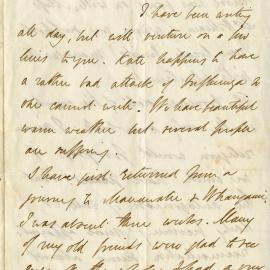 I have been writing
all day, but will venture on a few
lines to you. Kate happens to have
a rather bad attack of Influenza &
one cannot write. We have beautiful
warm weather but several people
are suffering.
I have just returned from a
journey to Manawatu & Whanganui.
I was about three weeks. Many
of my old friends were glad to see